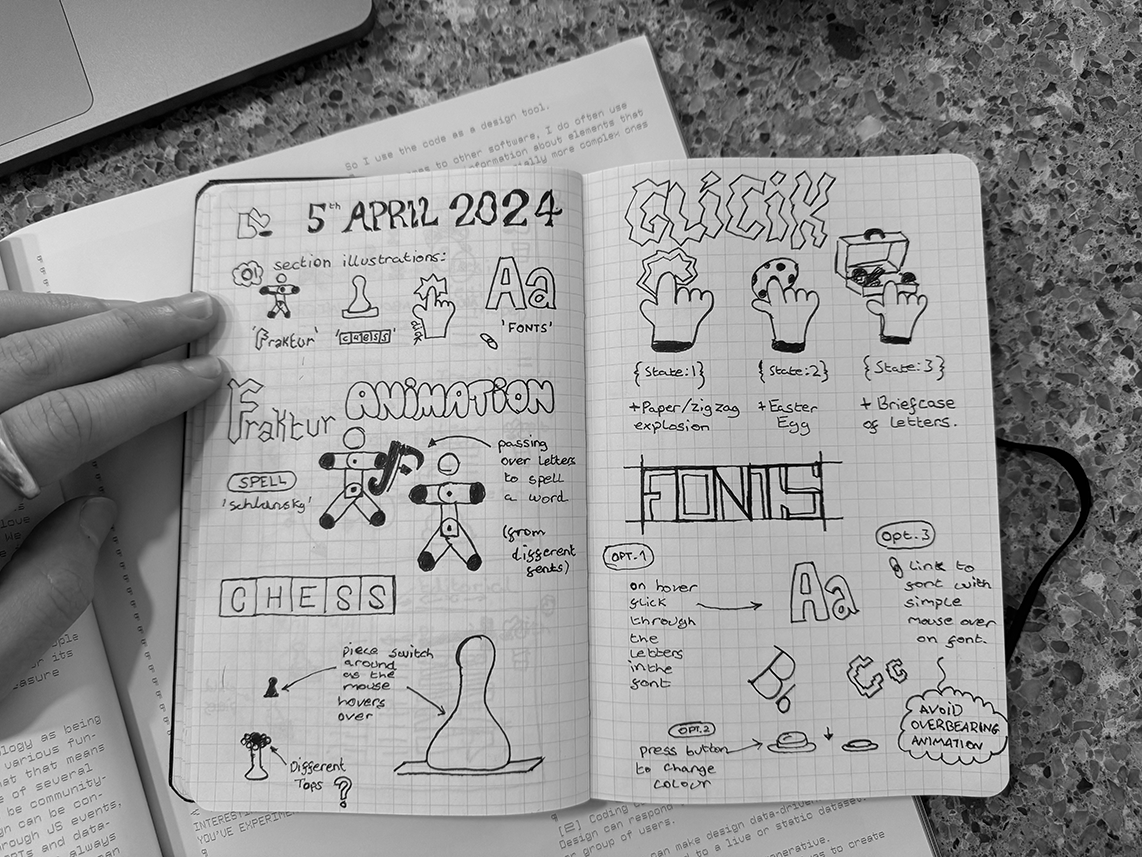 So I use the code as a design tool.
to other software, I do often use
information about elements that
more complex ones
5th APRIL 2024
01 section illustrations:
'Fraktur'
'CHESS'
Aa
'FONTS'
Fraktur ANIMATION
SPELL
passing
over letters
to spell
a word
(from
different
fonts)
CHESS
piece switch
around
as the
mouse
hovers
over
Different
Tops ?
GLICIK
{State:1}
{State:2}
{State:3}
+Paper/zigzag
explosion
+Easter
Egg
+ Briefcase
of letters.
FONTS
OPT.1
on hover
flick
through
the
letters
in the
font
Aa
Bb
Cc
OPT.2
Press button
to change
colour
Opt.3
Link to
font with
simple
mouse over
on font.
AVOID
OVERBEARING
ANIMATION
as being
various fun-
that means
of several
be community-
can be con-
US events,
and data-
can always
YOU'VE
[E] Coding
Design can respond
or group of users.
can make design data-driven
to a live or static dataset.
to create